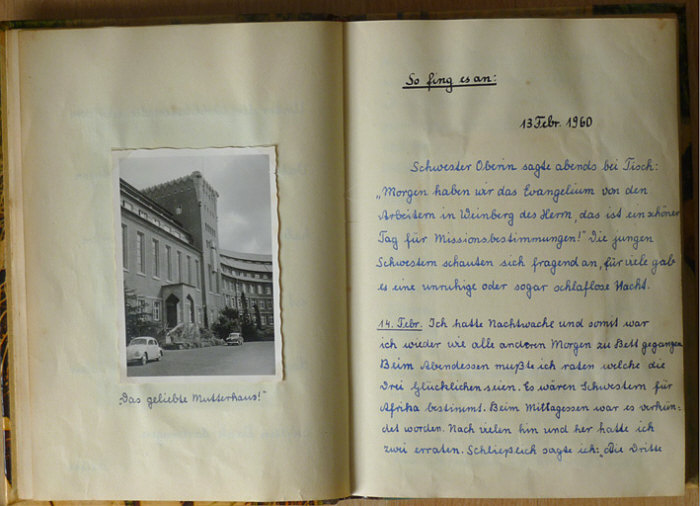 „Das geliebte Mutterhaus!"
So fing es an:
13 Febr. 1960
Schwester Oberin sagte abends bei Tisch:
„Morgen haben wir das Evangelium von den
Arbeitern in Weinberg des Herrn, das ist ein schöner
Tag für Missionsbestimmungen!" Die jungen
Schwestern schauten sich fragend an, für viele gab
es eine unruhige oder sogar schlaflose Nacht.
14. Febr. Ich hatte Nachtwache und somit war
ich wieder wie alle anderen Morgen zu Bett gegangen.
Beim Abendessen mußte ich raten welche die
Drei Glücklichen seien. Es wären Schwestern für
Afrika bestimmt. Beim Mittagessen war es verkün=
det worden. Nach vielen hin und her hatte ich
zwei erraten. Schließlich sagte ich: „Die Dritte